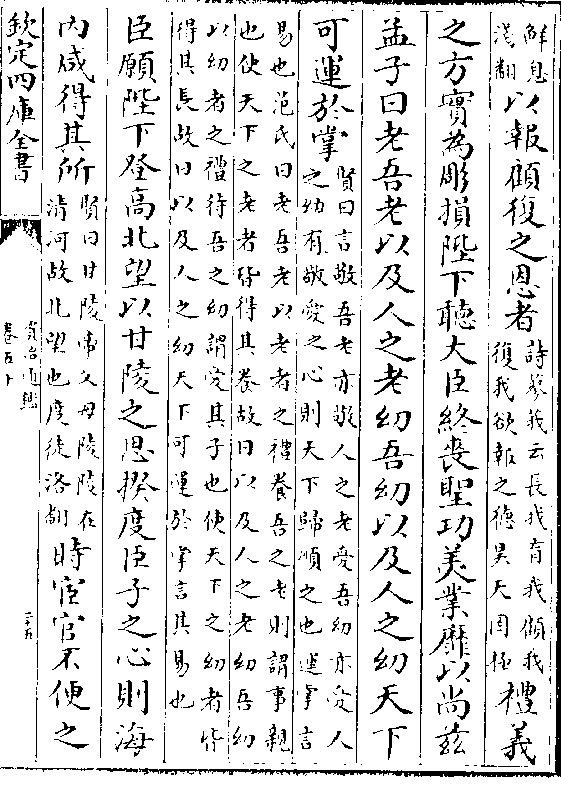 鮮息
淺翻
以報顧復之恩者
詩蓼莪云長我育我顧我
復我欲報之德昊天罔極
禮義
之方實為彫損陛下聽大臣終喪聖功美業靡以尚茲
孟子曰老吾老以及人之老幼吾幼以及人之幼天下
可運於掌
賢曰言敬吾老亦敬人之老愛吾幼亦愛人
之幼有敬愛之心則天下歸順之也運掌言
易也范氏曰老吾老以老者之禮養吾之老則謂事親
也使天下之老者皆得其養故曰以及人之老幼吾幼
以幼者之禮待吾之幼謂愛其子也使天下之幼者皆
得其長故曰以及人之幼天下可運於掌言其易也
臣願陛下登高北望以甘陵之思揆度臣子之心則海
內咸得其所
賢曰甘陵帝父母陵陵在
清河故北望也度徒洛翻
時宦官不便之
欽定四庫全書
資治通鑑
卷五十
三十五